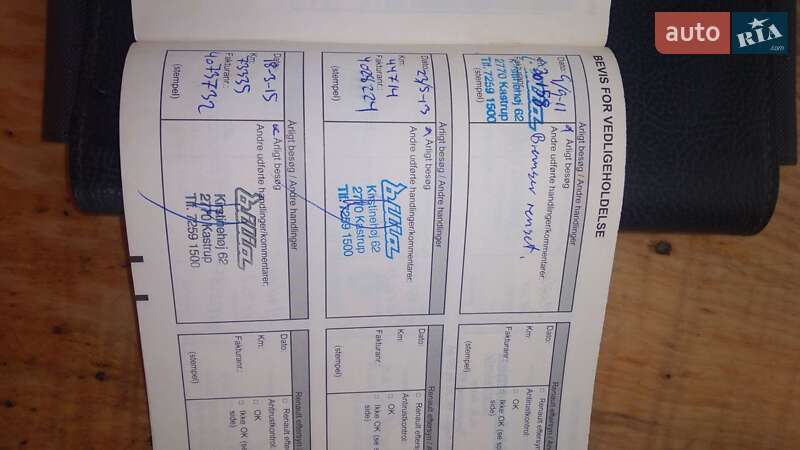 BEVIS FOR VEDLIGEHOLDELSE
Årligt besøg / Andre handlinger
Dato: 9/9-11
Årligt besøg
Andre udførte handlinger/kommentarer:
Bremser renset,
Kirstinehøj 62
2770 Kastrup
Tlf. 7259 1500
(stempel)
Dato:
Km:
Fakturanr.:
(stempel)
Renault eftersyn / An
Renault eftersyn
Antirustkontrol:
OK
Ikke OK (se s
side)
Årligt besøg / Andre handlinger
Dato: 23/5-13
Årligt besøg
Km: 44714
Andre udførte handlinger/kommentarer:
Fakturanr.: 4028224
(stempel)
Kirstinehøj 62
2770 Kastrup
Tlf. 7259 1500
Dato:
Km:
Fakturanr.:
(stempel)
Renault eftersyn / An
Renault efter
Antirustkontrol:
OK
Ikke OK (se s
side)
Årligt besøg / Andre handlinger
Dato: 18-3-15
Årligt besøg
Km: 73335
Andre udførte handlinger/kommentarer:
Fakturanr.: 4073732
(stempel)
Kirstinehøj 62
2770 Kastrup
Tlf. 7259 1500
Dato:
Km:
Fakturanr.:
(stempel)
Renault eftersyn /
Renault efter
Antirustkontrol:
OK
Ikke OK (se
side)
auto RIA
.com